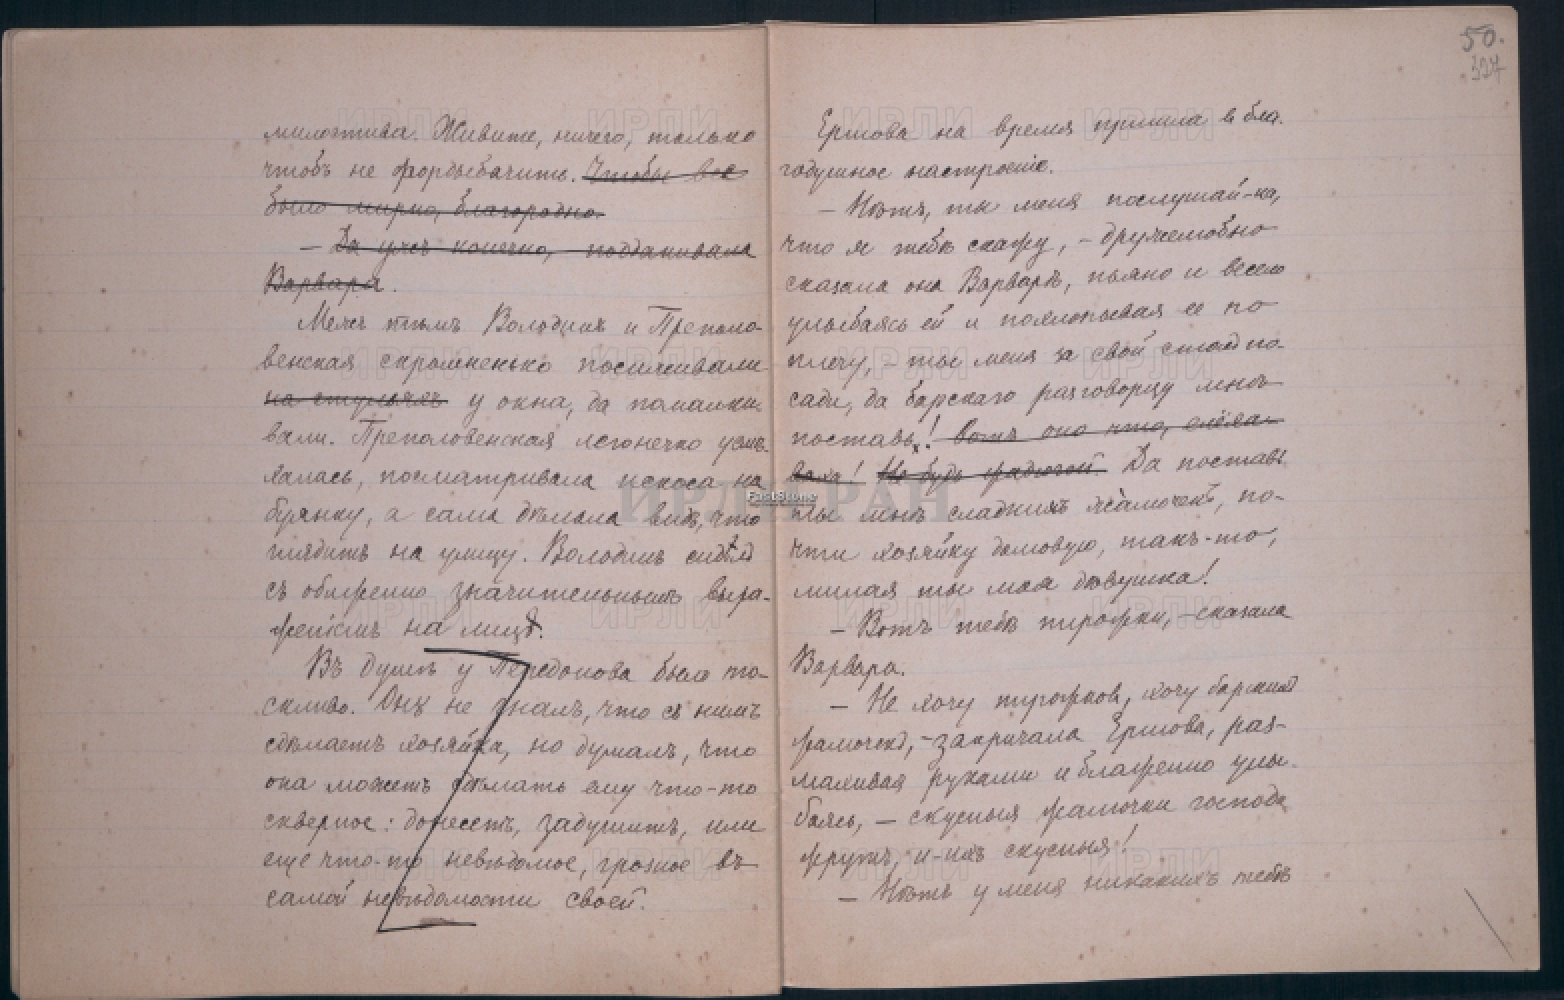 милостива. Живите, ничего, только
чтобъ не фордыбачить. Чтобы все
было мирно, благородно.
— Да ужъ конечно, поддакивала
Варвара.
Межъ тѣмъ Володинъ и Преполо-
венская скромненько посиживали
на стульяхъ у окна, да помалки-
вали. Преполовенская легонечко усмѣ-
халась, посматривала искоса на
буянку, а сама дѣлала видъ, что
глядитъ на улицу. Володинъ сидѣлъ
съ обиженно значительнымъ выра-
женіемъ на лицѣ.
Въ душѣ у Передонова было то-
скливо. Онъ не зналъ, что съ нимъ
сдѣлаетъ хозяйка, но думалъ, что
она можетъ сдѣлать ему что-то
скверное: донесетъ, задушитъ, или
еще что-то невѣдомое, грозное въ
самой невѣдомости своей.
50.
327
Ершова на время пришла в бла-
годушное настроеніе.
— Нѣтъ, ты меня послушай-ка,
что я тебѣ скажу, — дружелюбно
сказала она Варварѣ, пьяно и весело
улыбаясь ей и похлопывая ее по
плечу, — ты меня за свой столъ по-
сади, да барскаго разговорцу мнѣ
поставь! Вотъ оно что,
Не будь Да поставь
ты мнѣ сладкихъ жамочекъ, по-
чти хозяйку домовую, такъ-то,
милая ты моя дѣвушка!
— Вотъ тебѣ пирожки, — сказала
Варвара.
— Не хочу пирожковъ, хочу барскихъ
жамочекъ, — закричала Ершова, раз-
махивая руками и блаженно улы-
баясь, — скусныя жамочки господа
жрутъ, и-ихъ скусныя!
— Нѣтъ у меня никакихъ тебѣ
ИРЛИ РАН
FastStone